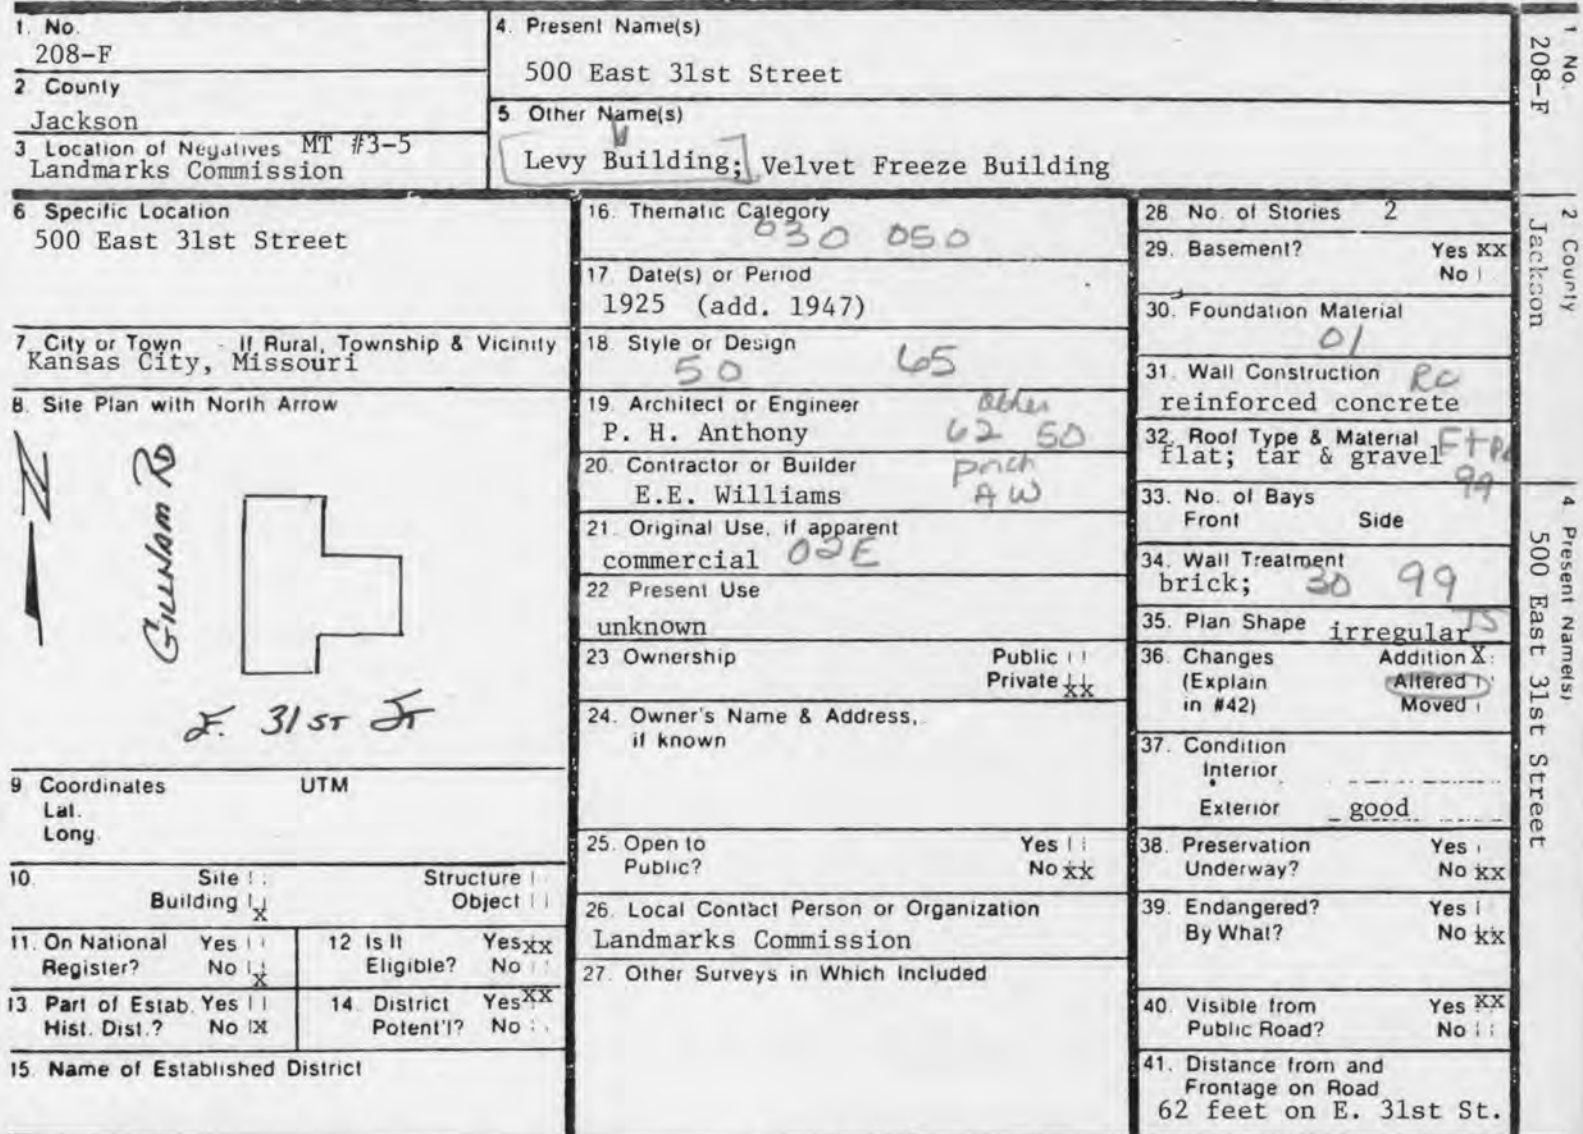 1. No.
208-F
2. County
Jackson
3 Location of Negatives MT #3-5
Landmarks Commission
4. Present Name(s)
500 East 31st Street
5. Other Name(s)
Levy Building; Velvet Freeze Building
6 Specific Location
500 East 31st Street
7. City or Town If Rural, Township & Vicinity
Kansas City, Missouri
8. Site Plan with North Arrow
N
GILLHAM RD
E. 31 ST ST
9 Coordinates UTM
Lat.
Long.
10. Site
Structure
Building X
Object
11. On National Register? Yes No X
12 Is It Eligible? Yes XX No
13. Part of Estab. Hist. Dist.? Yes No X
14. District Potent'l? Yes XX No
15. Name of Established District
16. Thematic Category
030 050
17. Date(s) or Period
1925 (add. 1947)
18. Style or Design
50 65
19. Architect or Engineer other
P. H. Anthony 62 50
20. Contractor or Builder porch
E.E. Williams AW
21. Original Use, if apparent
commercial 02E
22 Present Use
unknown
23 Ownership Public
Private XX
24. Owner's Name & Address,
if known
25. Open to Yes
Public? No XX
26. Local Contact Person or Organization
Landmarks Commission
27. Other Surveys in Which Included
28. No. of Stories 2
29. Basement? Yes XX
No
30. Foundation Material
01
31. Wall Construction RC
reinforced concrete
32. Roof Type & Material
flat; tar & gravel
99
33. No. of Bays
Front Side
34. Wall Treatment
brick; 30 99
35. Plan Shape irregular TS
36. Changes Addition X
(Explain Altered
in #42) Moved
37. Condition
Interior
Exterior good
38. Preservation Yes
Underway? No XX
39. Endangered? Yes
By What? No XX
40. Visible from Yes XX
Public Road? No
41. Distance from and
Frontage on Road
62 feet on E. 31st St.
1. No.
208-F
2 County
Jackson
4 Present Name(s)
500 East 31st Street